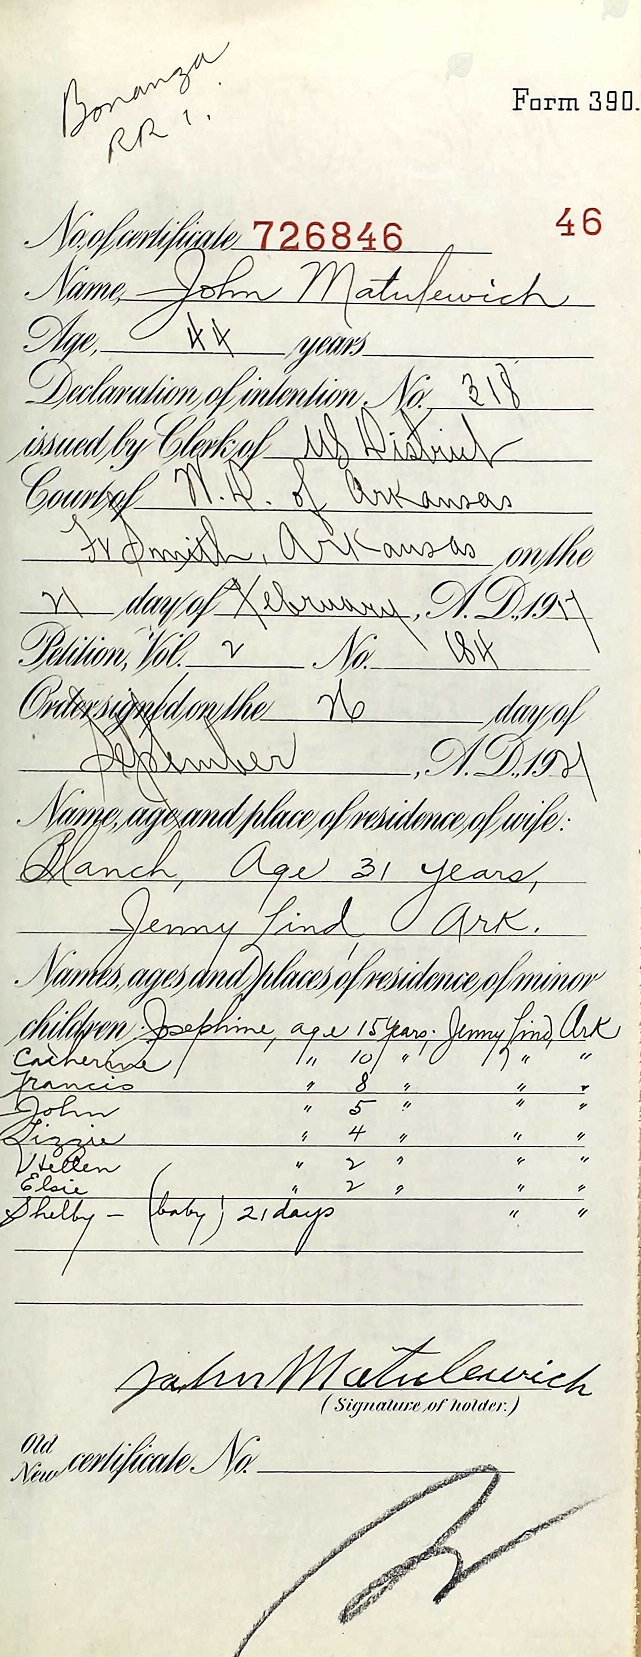 Bonanza
RR 1.
Form 390.
46
No. of certificate 726846
Name, John Matulewich
Age, 44 years
Declaration of intention, No. 318
issued by Clerk of US District
Court of W.D. of Arkansas
Ft Smith, Arkansas on the
21 day of February, A.D., 1917
Petition, Vol. 2 No. 184
Order signed on the 26 day of
September, A.D., 1921
Name, age and place of residence of wife:
Blanch, Age 31 years,
Jenny Lind, Ark.
Names, ages and places of residence of minor
children Josephine, age 15 years. Jenny Lind, Ark
Catherine " 10 " " "
Francis " 8 " " "
John " 5 " " "
Lizzie " 4 " " "
Hellen " 2 " " "
Elsie " 2 " " "
Shelby - (baby) 21 days " "
John Matulewich
(Signature of holder.)
Old
New certificate No.